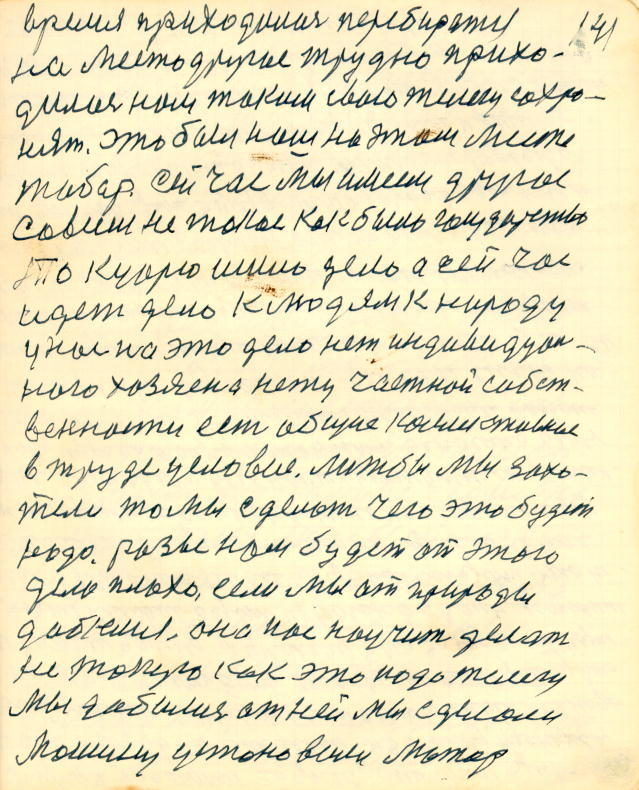 141
время приходилися перебирати
на место другое трудно прихо-
дилося нам таким свою телегу сохро-
нят. это был нам на этом месте
табар. сей час мы имеем другое
совсем не такое как было государство
это к царю шило дело а сей час
идет дело к людям к народу
у нас на это дело нет индивидуал-
ного хозяена нету частной собст-
венности ест общие колективное
в труде условие. лижбы мы захо-
тели то мы сделаем чего это будет
надо. разве нам будет от этого
дела плохо, если мы от природы
добемся, она нас научит делат
не токую как это надо телегу
мы добылися от ней мы сделали
машину установили мотор